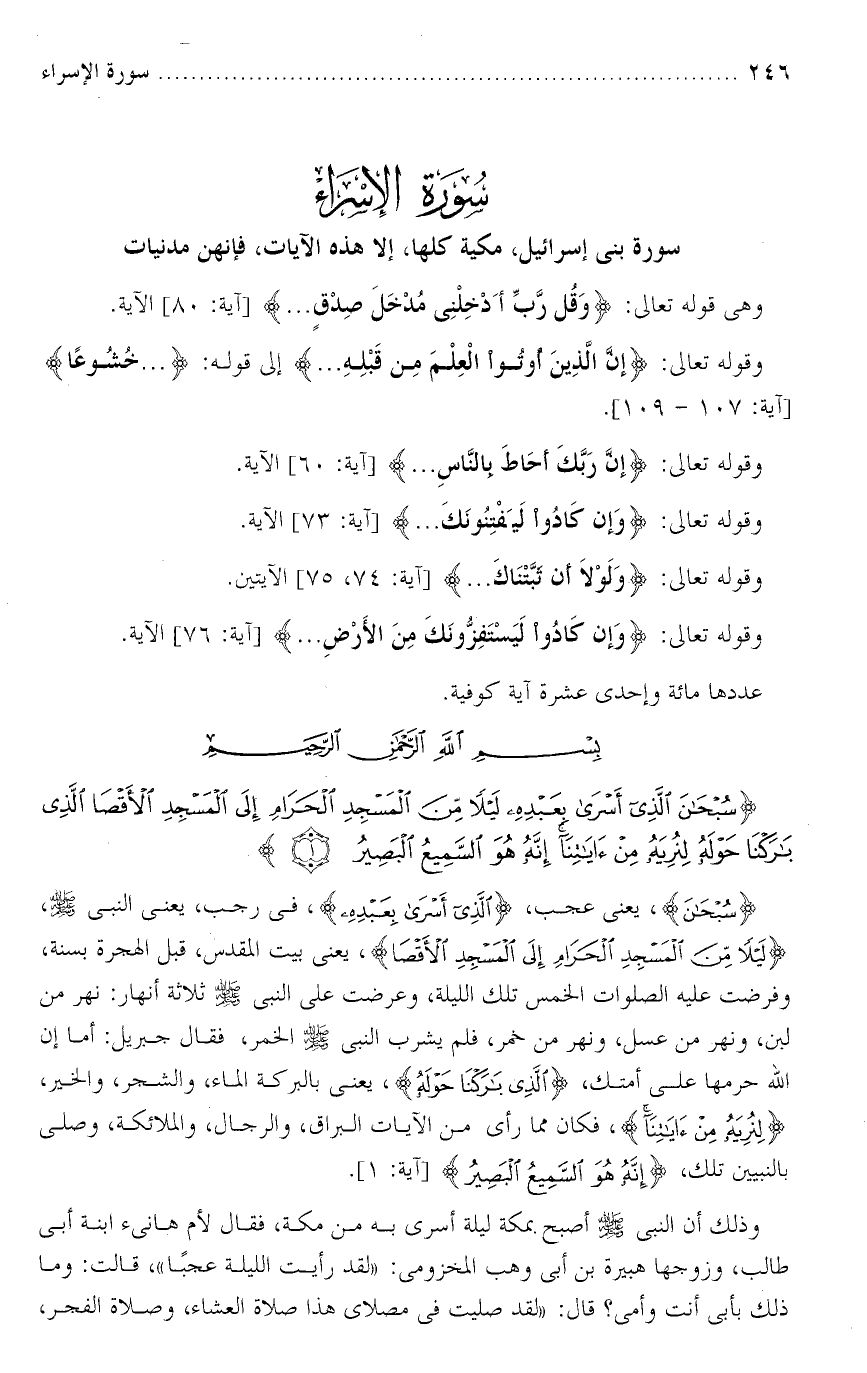 ٢٤٦ ........................................................................ سورة الإسراء
سُورَةُ الإِسْرَاءِ
سورة بنى إسرائيل، مكية كلها، إلا هذه الآيات، فإنهن مدنيات
وهى قوله تعالى: ﴿وَقُل رَّبِّ أَدْخِلْنِى مُدْخَلَ صِدْقٍ...﴾ [آية: ٨٠] الآية.
وقوله تعالى: ﴿إِنَّ الَّذِينَ أُوتُواْ الْعِلْمَ مِن قَبْلِهِ...﴾ إلى قوله: ﴿...خُشُوعًا﴾
[آية: ١٠٧ - ١٠٩].
وقوله تعالى: ﴿إِنَّ رَبَّكَ أَحَاطَ بِالنَّاسِ...﴾ [آية: ٦٠] الآية.
وقوله تعالى: ﴿وَإِن كَادُواْ لَيَفْتِنُونَكَ...﴾ [آية: ٧٣] الآية.
وقوله تعالى: ﴿وَلَوْلاَ أَن ثَبَّتْنَاكَ...﴾ [آية: ٧٤، ٧٥] الآيتين.
وقوله تعالى: ﴿وَإِن كَادُواْ لَيَسْتَفِزُّونَكَ مِنَ الأَرْضِ...﴾ [آية: ٧٦] الآية.
عددها مائة وإحدى عشرة آية كوفية.
بِسْمِ ٱللَّهِ ٱلرَّحْمَٰنِ ٱلرَّحِيمِ
﴿سُبْحَٰنَ ٱلَّذِىٓ أَسْرَىٰ بِعَبْدِهِۦ لَيْلًا مِّنَ ٱلْمَسْجِدِ ٱلْحَرَامِ إِلَى ٱلْمَسْجِدِ ٱلْأَقْصَا ٱلَّذِى
بَٰرَكْنَا حَوْلَهُۥ لِنُرِيَهُۥ مِنْ ءَايَٰتِنَآ ۚ إِنَّهُۥ هُوَ ٱلسَّمِيعُ ٱلْبَصِيرُ ١ ﴾
﴿سُبْحَٰنَ﴾، يعنى عجب، ﴿ٱلَّذِىٓ أَسْرَىٰ بِعَبْدِهِۦ﴾، فى رجب، يعنى النبى ﷺ،
﴿لَيْلًا مِّنَ ٱلْمَسْجِدِ ٱلْحَرَامِ إِلَى ٱلْمَسْجِدِ ٱلْأَقْصَا﴾، يعنى بيت المقدس، قبل الهجرة بسنة،
وفرضت عليه الصلوات الخمس تلك الليلة، وعرضت على النبى ﷺ ثلاثة أنهار: نهر من
لبن، ونهر من عسل، ونهر من خمر، فلم يشرب النبى ﷺ الخمر، فقال جبريل: أما إن
الله حرمها على أمتك، ﴿ٱلَّذِى بَٰرَكْنَا حَوْلَهُۥ﴾، يعنى بالبركة الماء، والشجر، والخير،
﴿لِنُرِيَهُۥ مِنْ ءَايَٰتِنَآ ۚ﴾، فكان مما رأى من الآيات البراق، والرجال، والملائكة، وصلى
بالنبيين تلك، ﴿إِنَّهُۥ هُوَ ٱلسَّمِيعُ ٱلْبَصِيرُ﴾ [آية: ١].
وذلك أن النبى ﷺ أصبح بمكة ليلة أسرى به من مكة، فقال لأم هانىء ابنة أبى
طالب، وزوجها هبيرة بن أبى وهب المخزومى: «لقد رأيت الليلة عجبًا»، قالت: وما
ذلك بأبى أنت وأمى؟ قال: «لقد صليت فى مصلاى هذا صلاة العشاء، وصلاة الفجر،